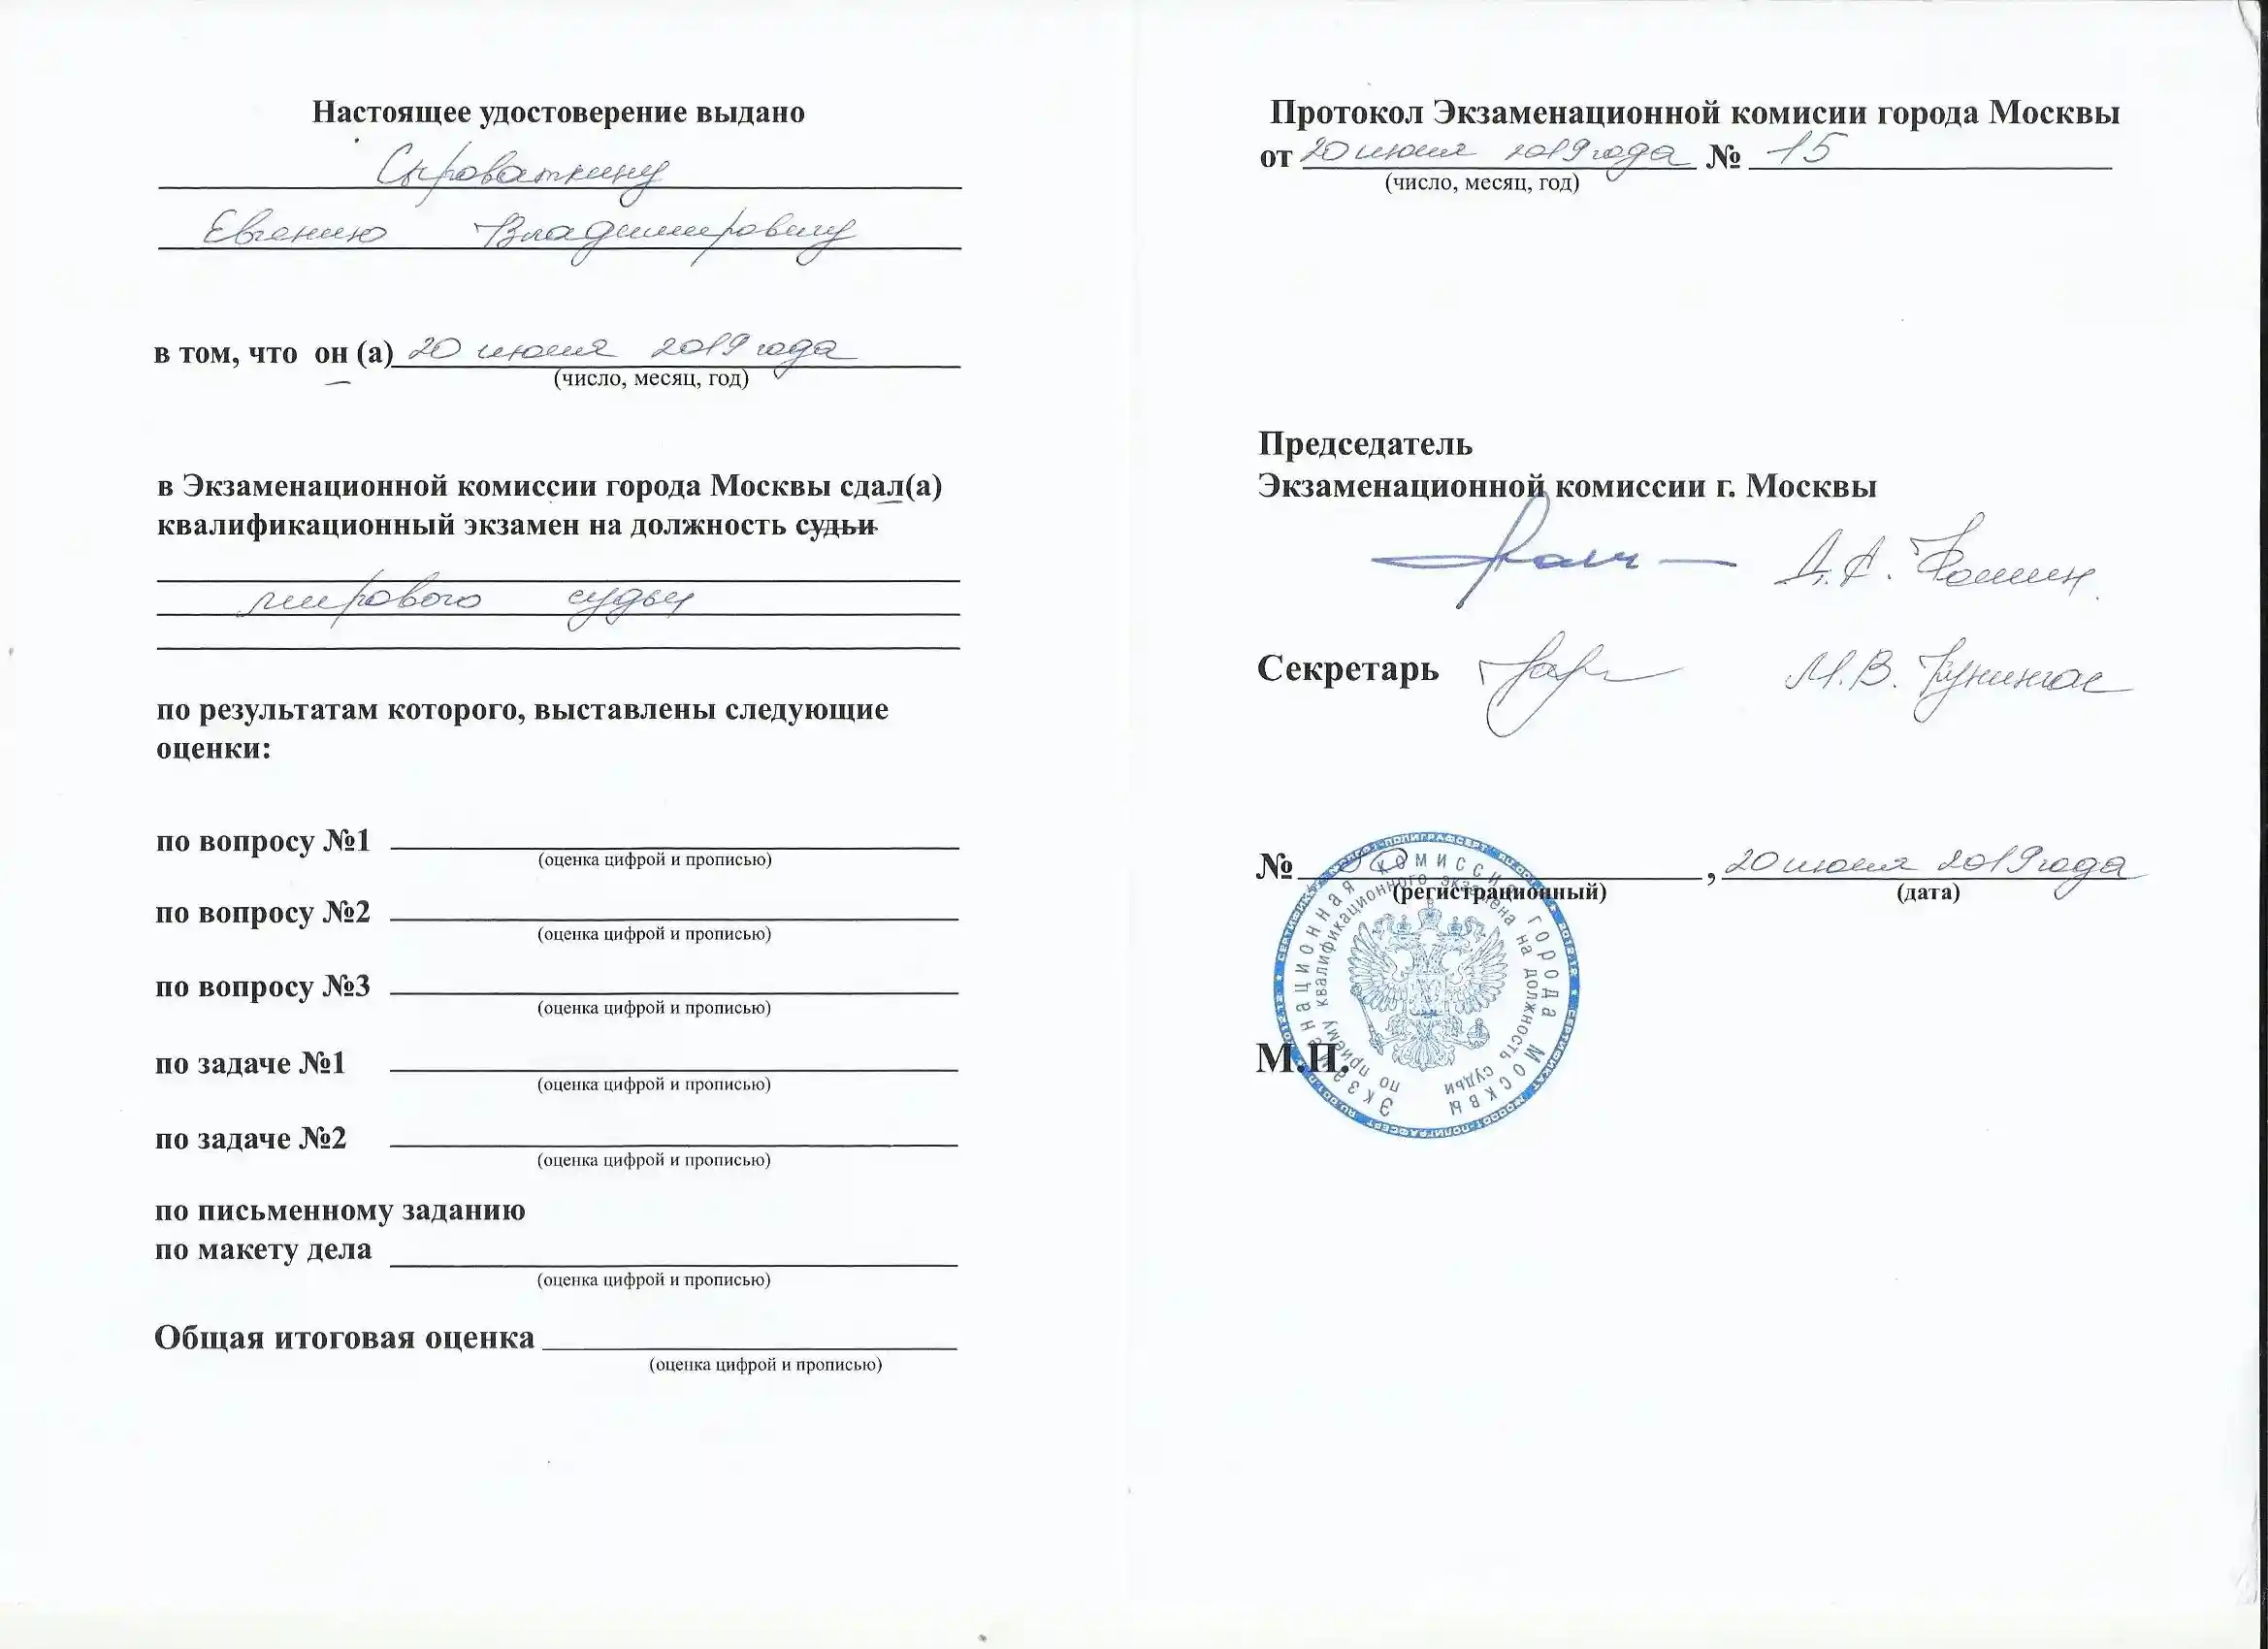 Настоящее удостоверение выдано
Сыроваткину
Евгению Владимировичу
в том, что он (а) 20 июня 2019 года
(число, месяц, год)
в Экзаменационной комиссии города Москвы сдал(а)
квалификационный экзамен на должность судьи
мирового судьи
по результатам которого, выставлены следующие
оценки:
по вопросу №1
(оценка цифрой и прописью)
по вопросу №2
(оценка цифрой и прописью)
по вопросу №3
(оценка цифрой и прописью)
по задаче №1
(оценка цифрой и прописью)
по задаче №2
(оценка цифрой и прописью)
по письменному заданию
по макету дела
(оценка цифрой и прописью)
Общая итоговая оценка
(оценка цифрой и прописью)
Протокол Экзаменационной комисии города Москвы
от 20 июня 2019 года № 15
(число, месяц, год)
Председатель
Экзаменационной комиссии г. Москвы
Д.А. Фомин
Секретарь М.В.
№ , 20 июня 2019 года
(регистрационный) (дата)
М.П.
Экзаменационная комиссия города Москвы
по приему квалификационного экзамена на должность судьи